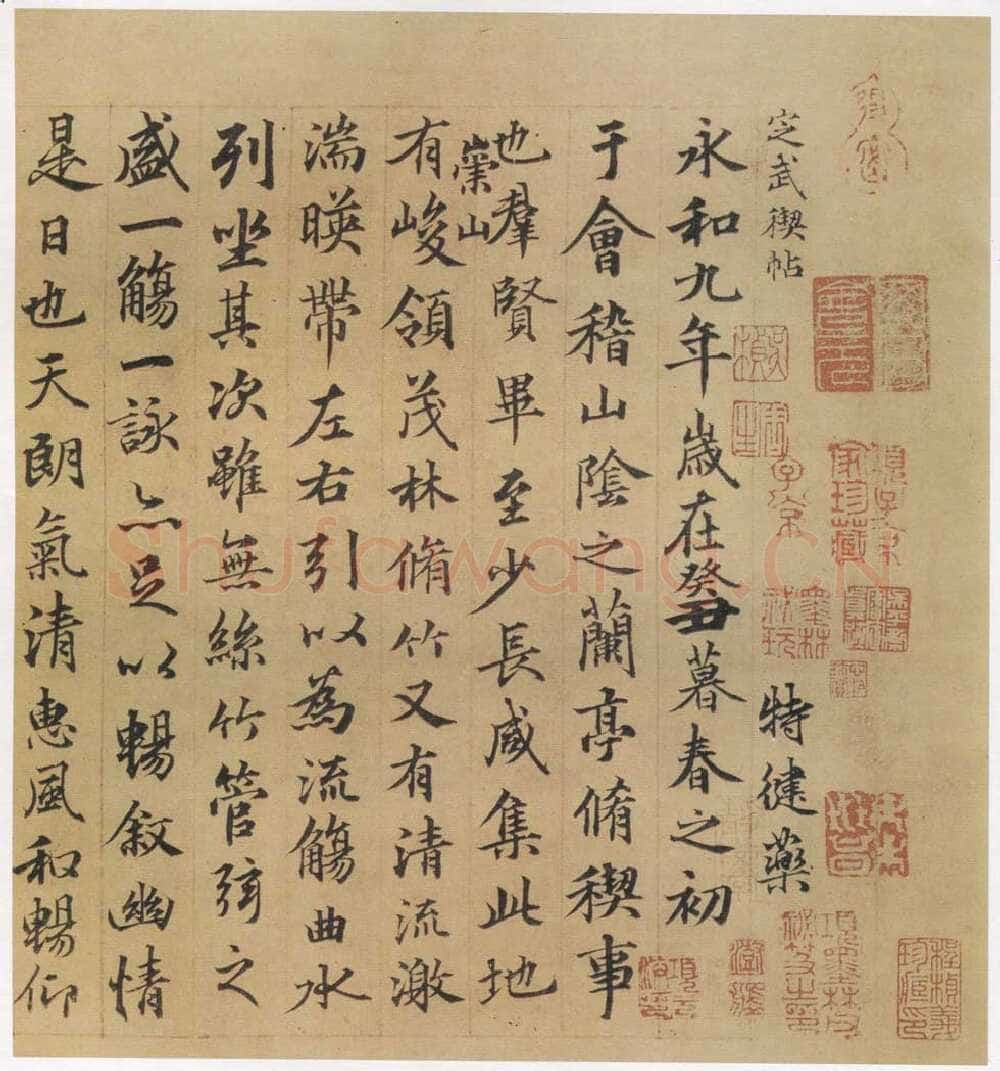 定武禊帖
特健藥
永和九年歲在癸丑暮春之初
于會稽山陰之蘭亭脩稧事
也羣賢畢至少長咸集此地
崇山
有峻領茂林脩竹又有清流激
湍暎帶左右引以為流觴曲水
列坐其次雖無絲竹管弦之
盛一觴一詠亦足以暢敘幽情
是日也天朗氣清惠風和暢仰
項子京家珍藏
子京
程楨義珍藏印
Shufawang.CN